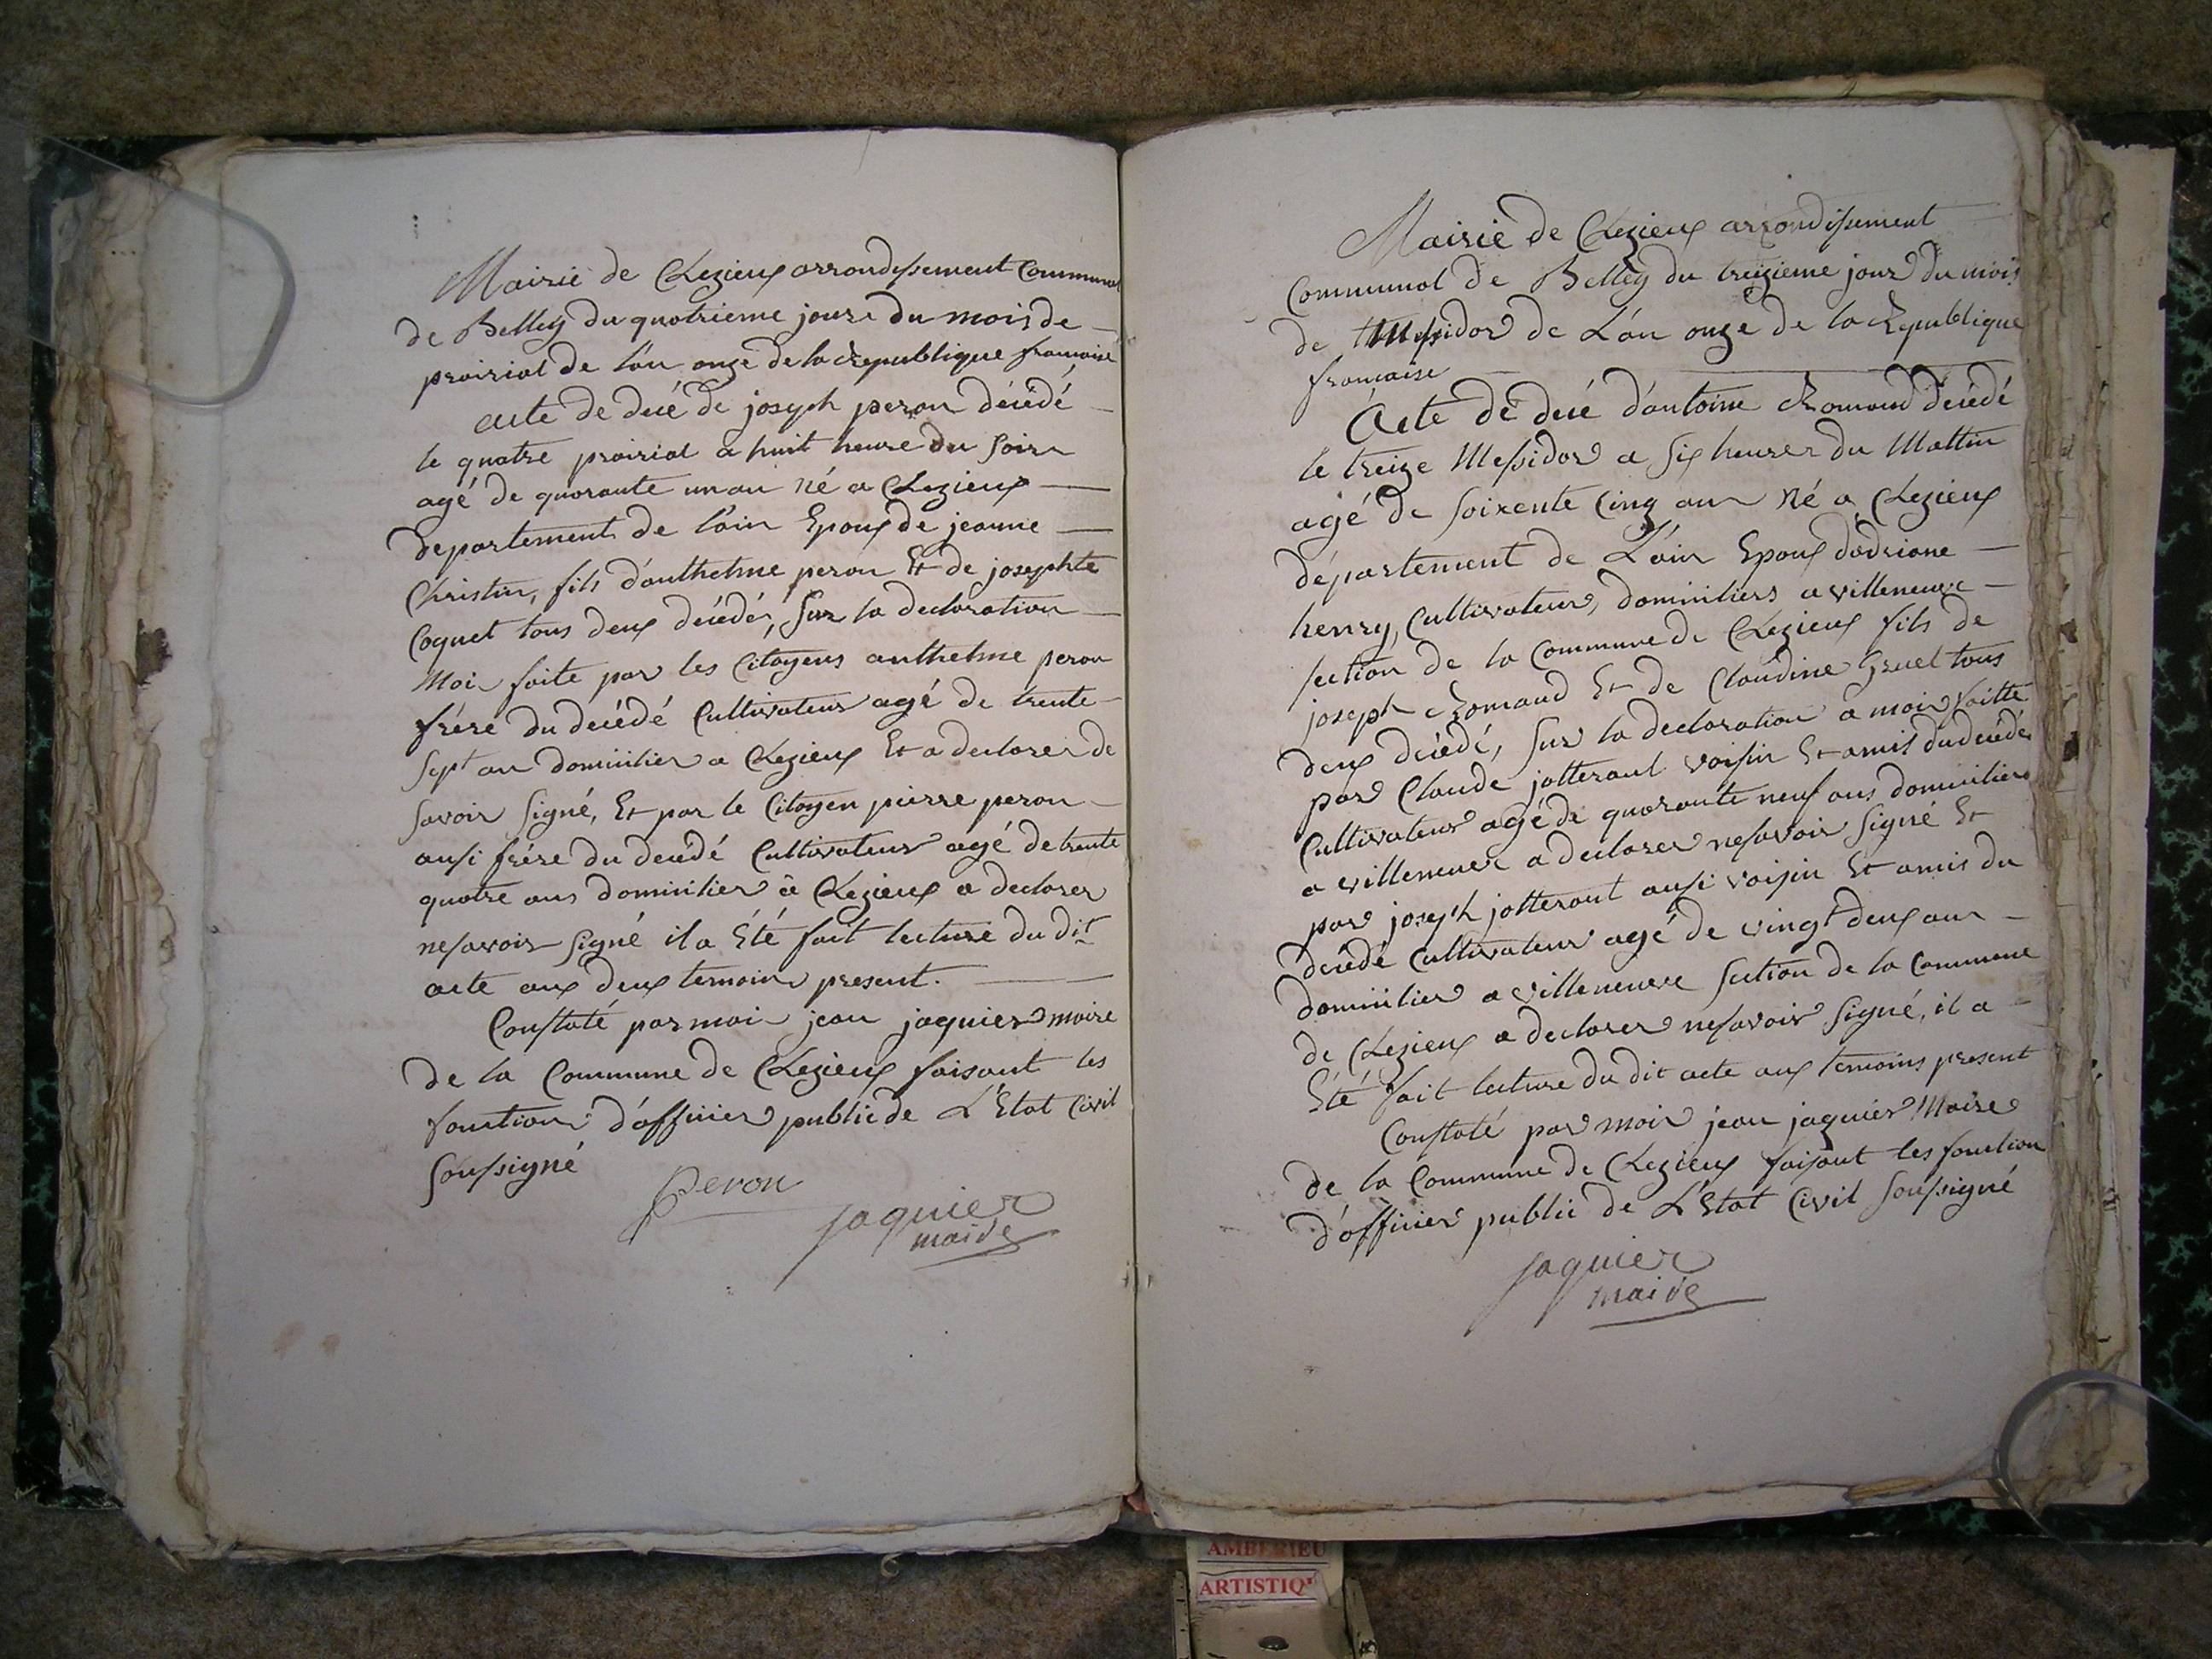 Mairie de Chezieux arrondissement Communal
de Belley du quatrieme jour du mois de
prairial de l'an onze de la Republique francaise
acte de decé de joseph peron décédé
le quatre prairial a huit heure du soir
agé de quarante un an né a Chezieux
departement de l'ain Epoux de jeanne
Christin, fils d'anthelme peron Et de josephte
Coquet tous deux décédés, sur la declaration
Moi faite par les Citoyens anthelme peron
frére du décédé Cultivateur agé de trente
Sept an domicilier a Chezieux Et a declarer de
savoir signé, Et par le Citoyen pierre peron
ausi frére du decédé Cultivateur agé de trente
quatre ans domicilier à Chezieux a declarer
ne savoir signé il a Été fait lecture du dit
acte aux deux temoins present.
Constaté par moi jean jaquier maire
de la Commune de Chezieux faisant les
fonction d'officier public de L'Etat Civil
soussigné
Peron
jaquier
maire
Mairie de Chezieux arrondissement
Communal de Belley du treizieme jour du mois
de Messidor de L'an onze de la Republique
francaise
Acte de decé d'antoine Romand décédé
le treize Messidor a six heures du Mattin
agé de soixente Cinq ans Né a Chezieux
département de L'ain Epoux d'adriane
henry, Cultivateur, domiciliers a villeneuve
section de la Commune de Chezieux fils de
joseph Romand Et de Claudine Gruel tous
deux décédé, sur la declaration a moi faitte
par Claude jotterant voisin Et amis du decédé
Cultivateur agé de quarante neuf ans domicilier
a villeneuve a declarer ne savoir signé Et
par joseph jotterant ausi voisin Et amis du
decédé Cultivateur agé de vingt deux ans
domicilier a villeneuve section de la Commune
de Chezieux a declarer ne savoir signé, il a
Été fait lecture du dit acte aux temoins present
Constaté par moi jean jaquier Maire
de la Commune de Chezieux faisant les fonction
d'officier public de L'Etat Civil soussigné
jaquier
maire
AMBERIEU
ARTISTIQ